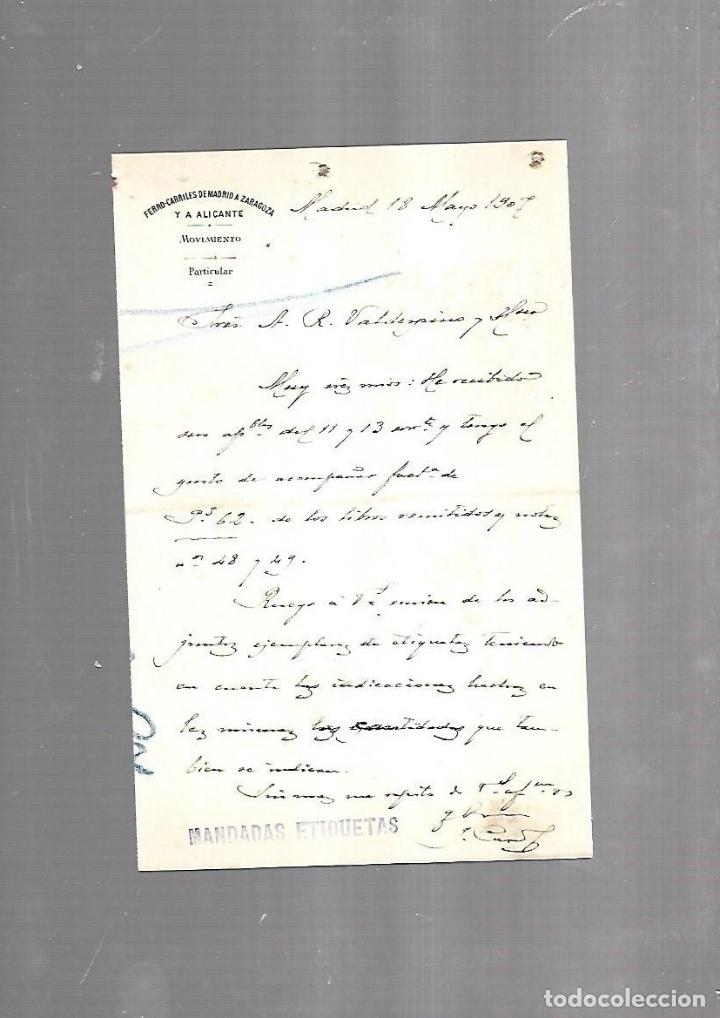 FERRO-CARRILES DE MADRID A ZARAGOZA
Y A ALICANTE
MOVIMIENTO
Particular
Madrid 18 Mayo 1907
Sres. A. R. Valdespino y Hno
Muy sres mios: He recibido
sus del 11 y 13 corrte y tengo el
gusto de acompañar fact.a de
Ps 62. de los libros remitidos y notas
nos 48 y 49.
Ruego á Vs de los ad-
juntos ejemplares de etiquetas teniendo
en cuenta las indicaciones hechas en
las mismas las cantidades que tam-
bien se indican.
me repito de Vs
MANDADAS ETIQUETAS
todocoleccion
todocoleccion.net